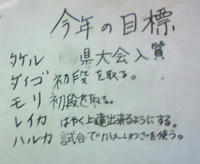 今年の目標
タケル 県大会入賞
ダイゴ 初段を取る。
モリ 初段を取る。
レイカ はやく上達出来るようにする。
ハルカ 試合でかえしわざを使う。